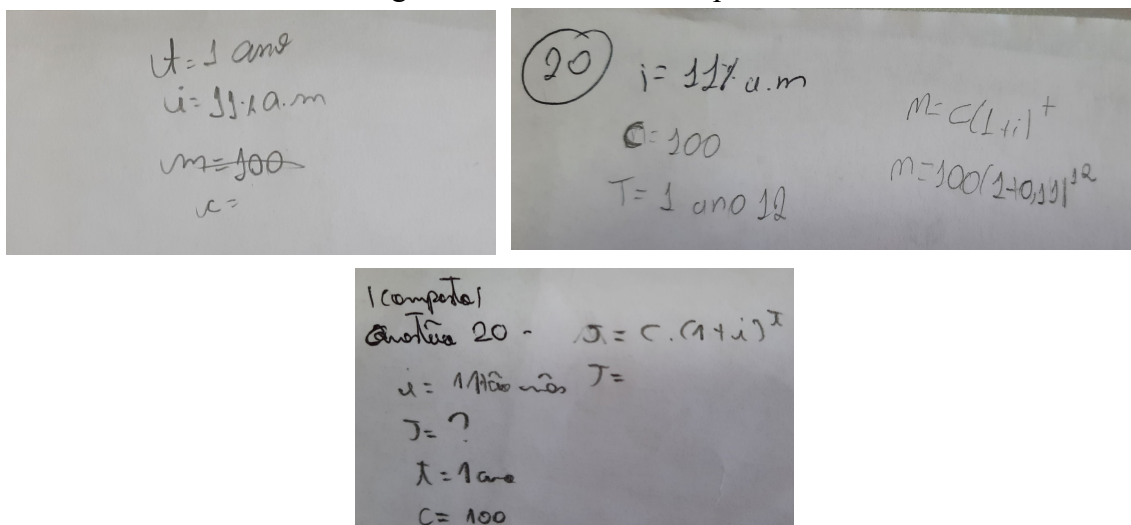 t = 1 ano
i = 11% a.m
m = 100
c =
20
i = 11% a.m
C = 100
T = 1 ano 12
M = C(1+i)^t
M = 100(1+0,11)^12
(composto)
Questão 20 -
J = C.(1+i)^t
i = 11% ao mês
J =
J = ?
t = 1 ano
C = 100